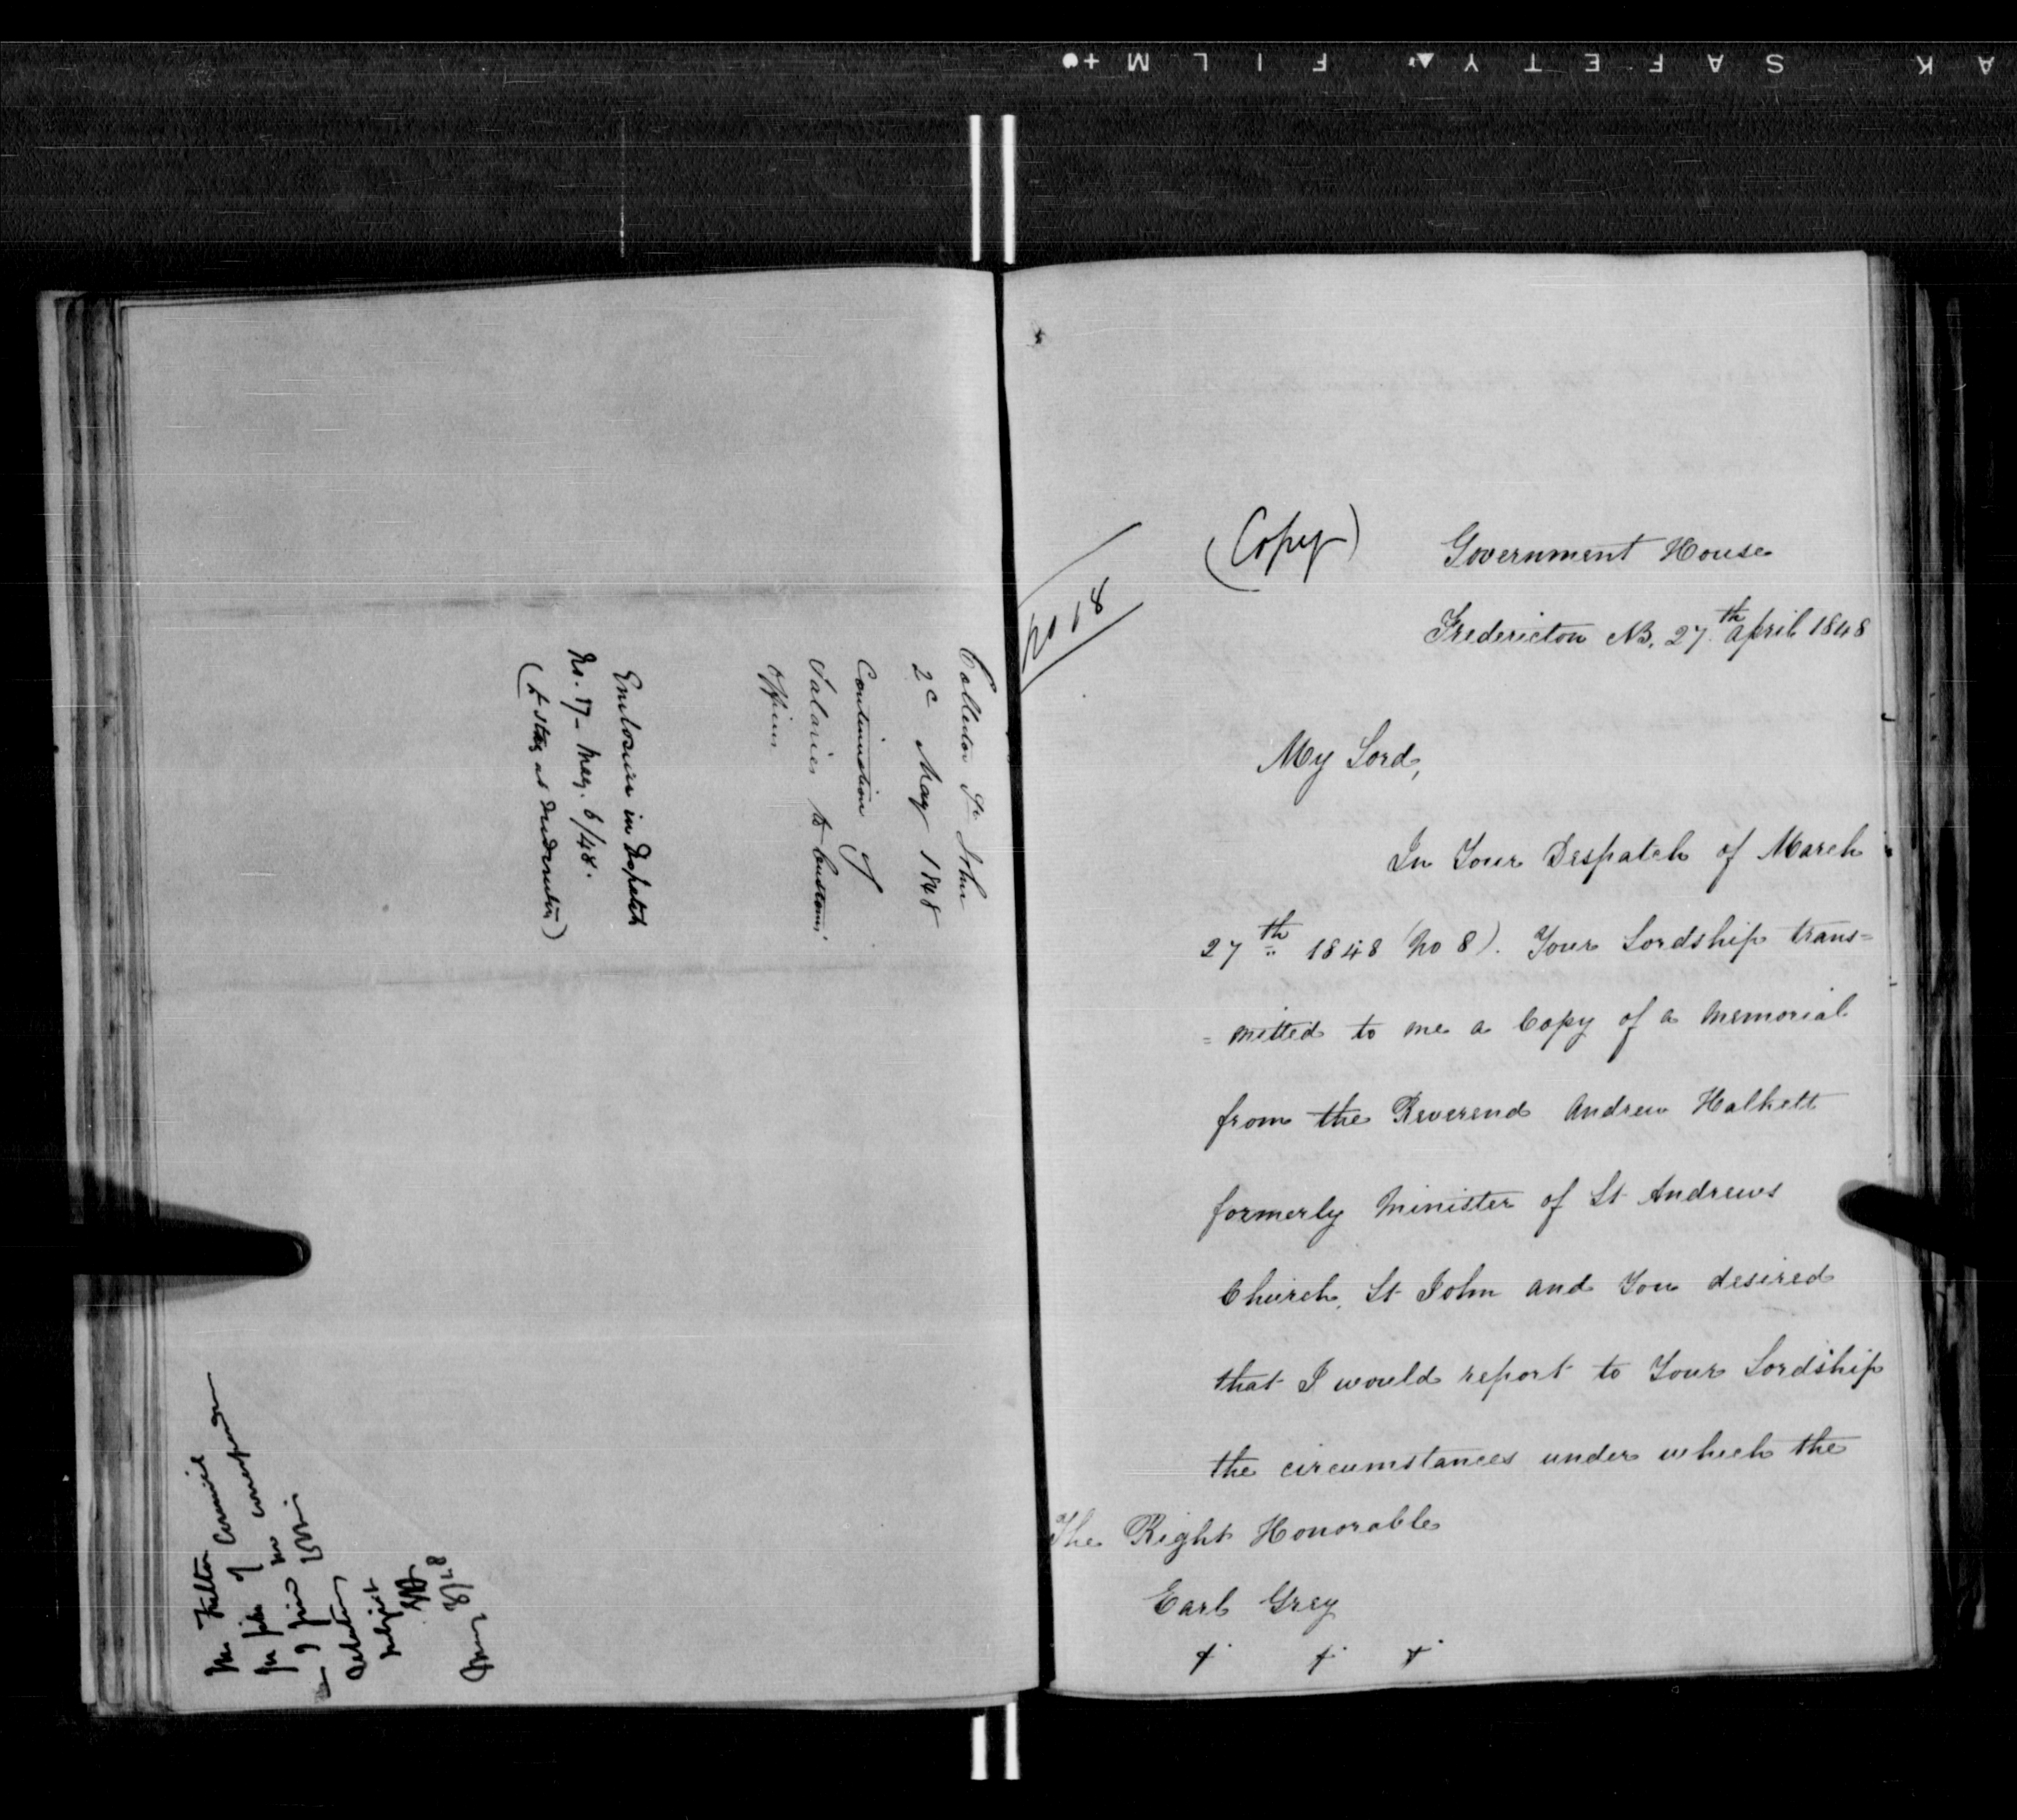 SAFETY FILM
Collector St John
2d May 1848
Continuation of
Salaries to Customs
Officers
Enclosure in Despatch
No. 17 - May. 6/48.
Mr Fulton
subject
No 18
(Copy)
Government House
Fredericton NB. 27th April 1848
My Lord,
In Your Despatch of March
27th 1848 (No 8). Your Lordship trans=
=mitted to me a Copy of a Memorial
from the Reverend Andrew Halkett
formerly Minister of St Andrews
Church, St John and You desired
that I would report to Your Lordship
the circumstances under which the
The Right Honorable
Earl Grey